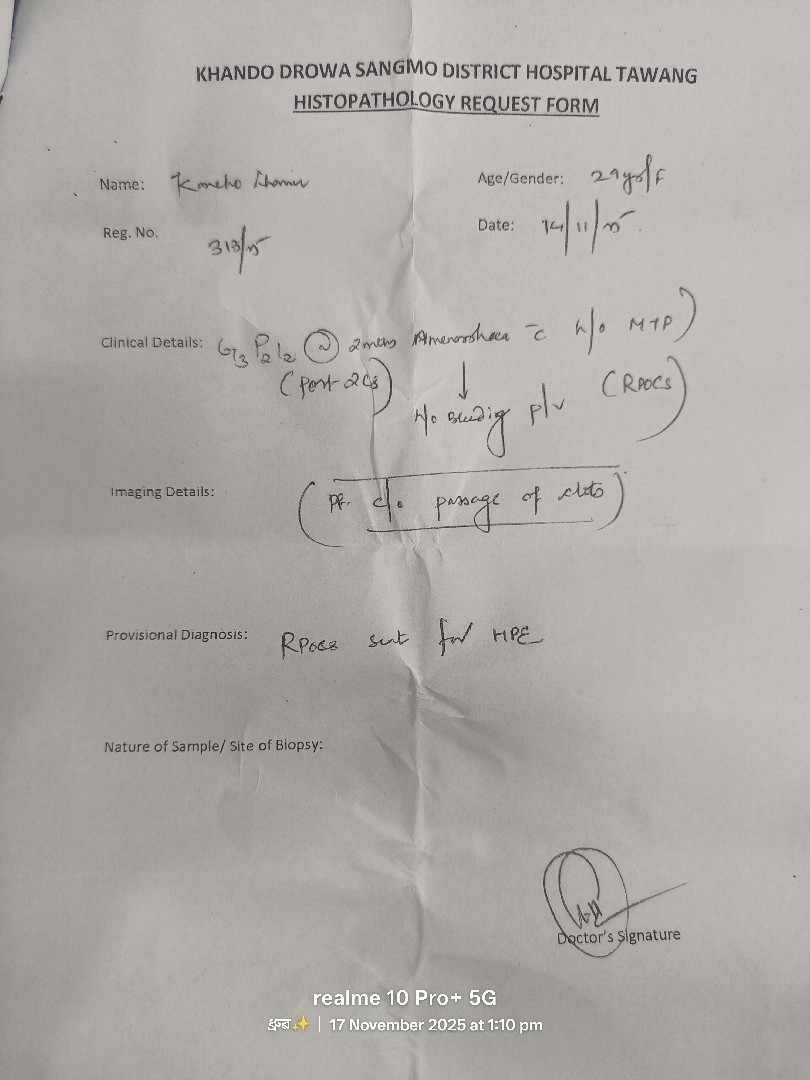 KHANDO DROWA SANGMO DISTRICT HOSPITAL TAWANG
HISTOPATHOLOGY REQUEST FORM
Name: Age/Gender: 29yrs/F
Reg. No. 313/25 Date: 14/11/25
Clinical Details: G3 P2 L2 @ 2 mths Amenorrhoea c h/o MTP
(Post-2CS) ↓ (RPOCS)
H/o Bleeding p/v
Imaging Details: (Pt. c/o passage of clots)
Provisional Diagnosis: RPOCS sent for HPE
Nature of Sample/ Site of Biopsy:
Doctor's Signature
realme 10 Pro+ 5G
✨ | 17 November 2025 at 1:10 pm